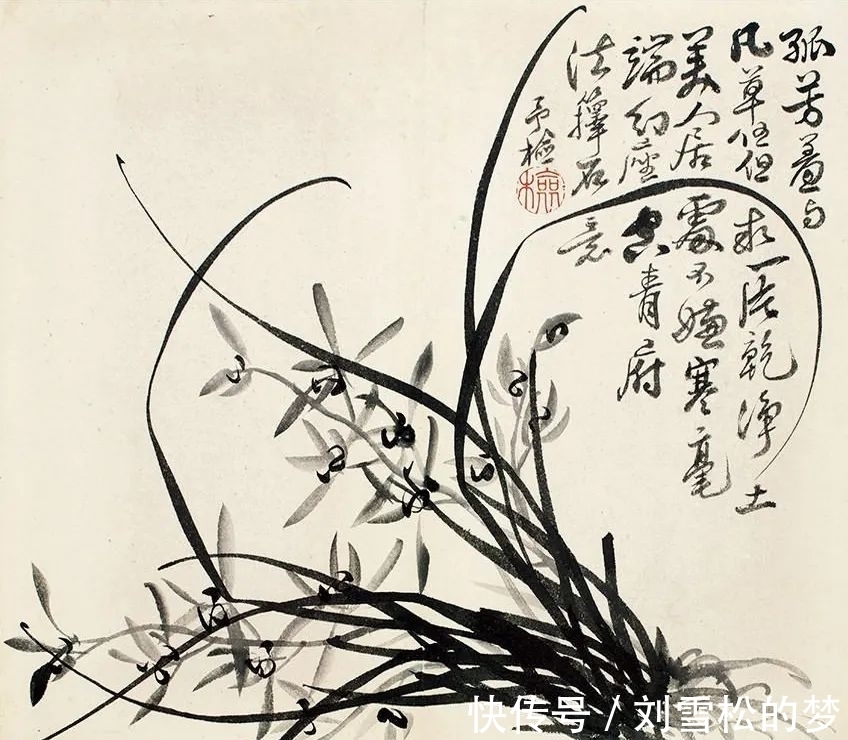 孤芳羞与
凡草伍但求一片乾淨土
美人居處不嫌寒毫
端幻座空青府
法籜石意
予檢
快传号/刘雪松的梦